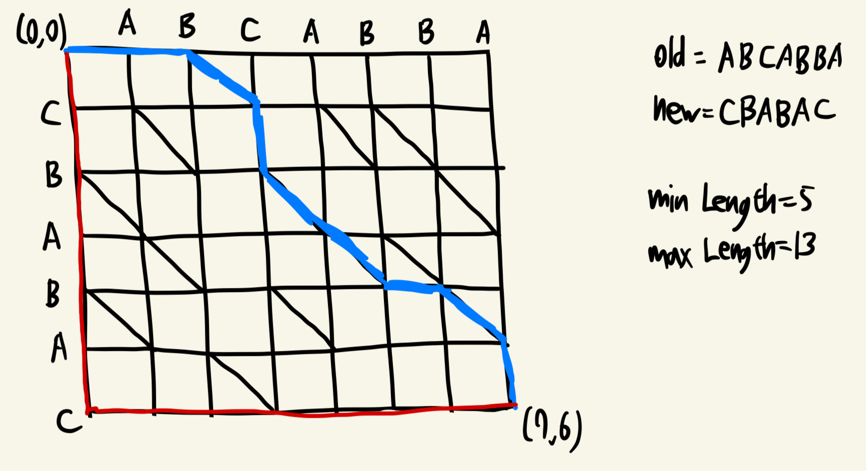 (0,0) A B C A B B A
C
B
A
B
A
C
(7,6)
old = ABCABBA
new=CBABAC
min Length=5
max Length=13